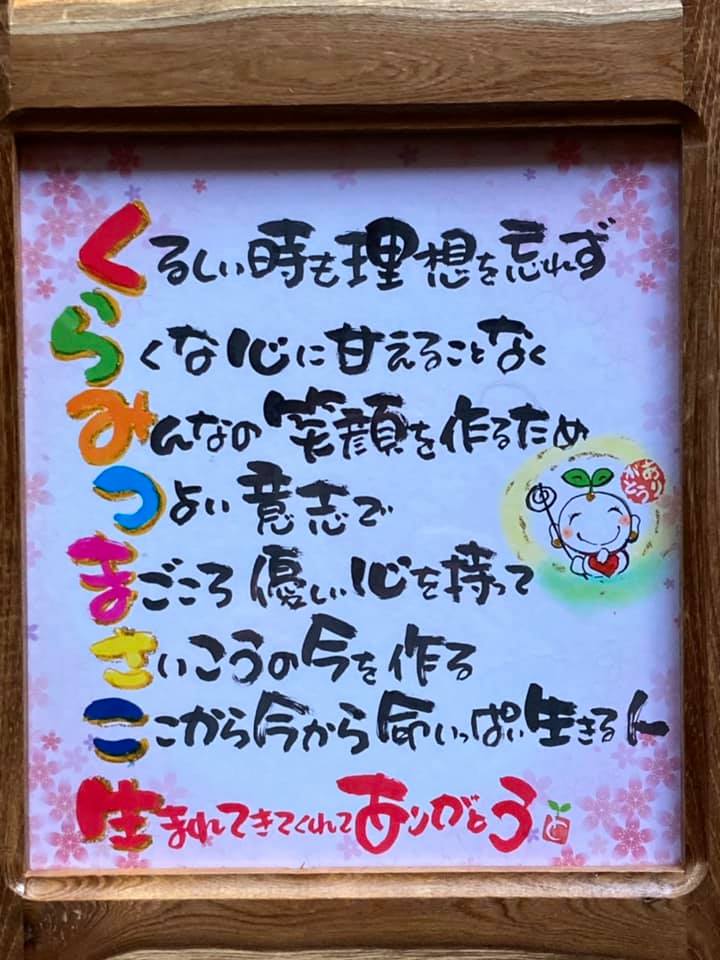 くるしい時も理想を忘れず
らくな心に甘えることなく
みんなの笑顔を作るため
つよい意志で
まごころ優しい心を持って
さいこうの今を作る
ここから今から命いっぱい生きる人
生まれてきてくれてありがとう